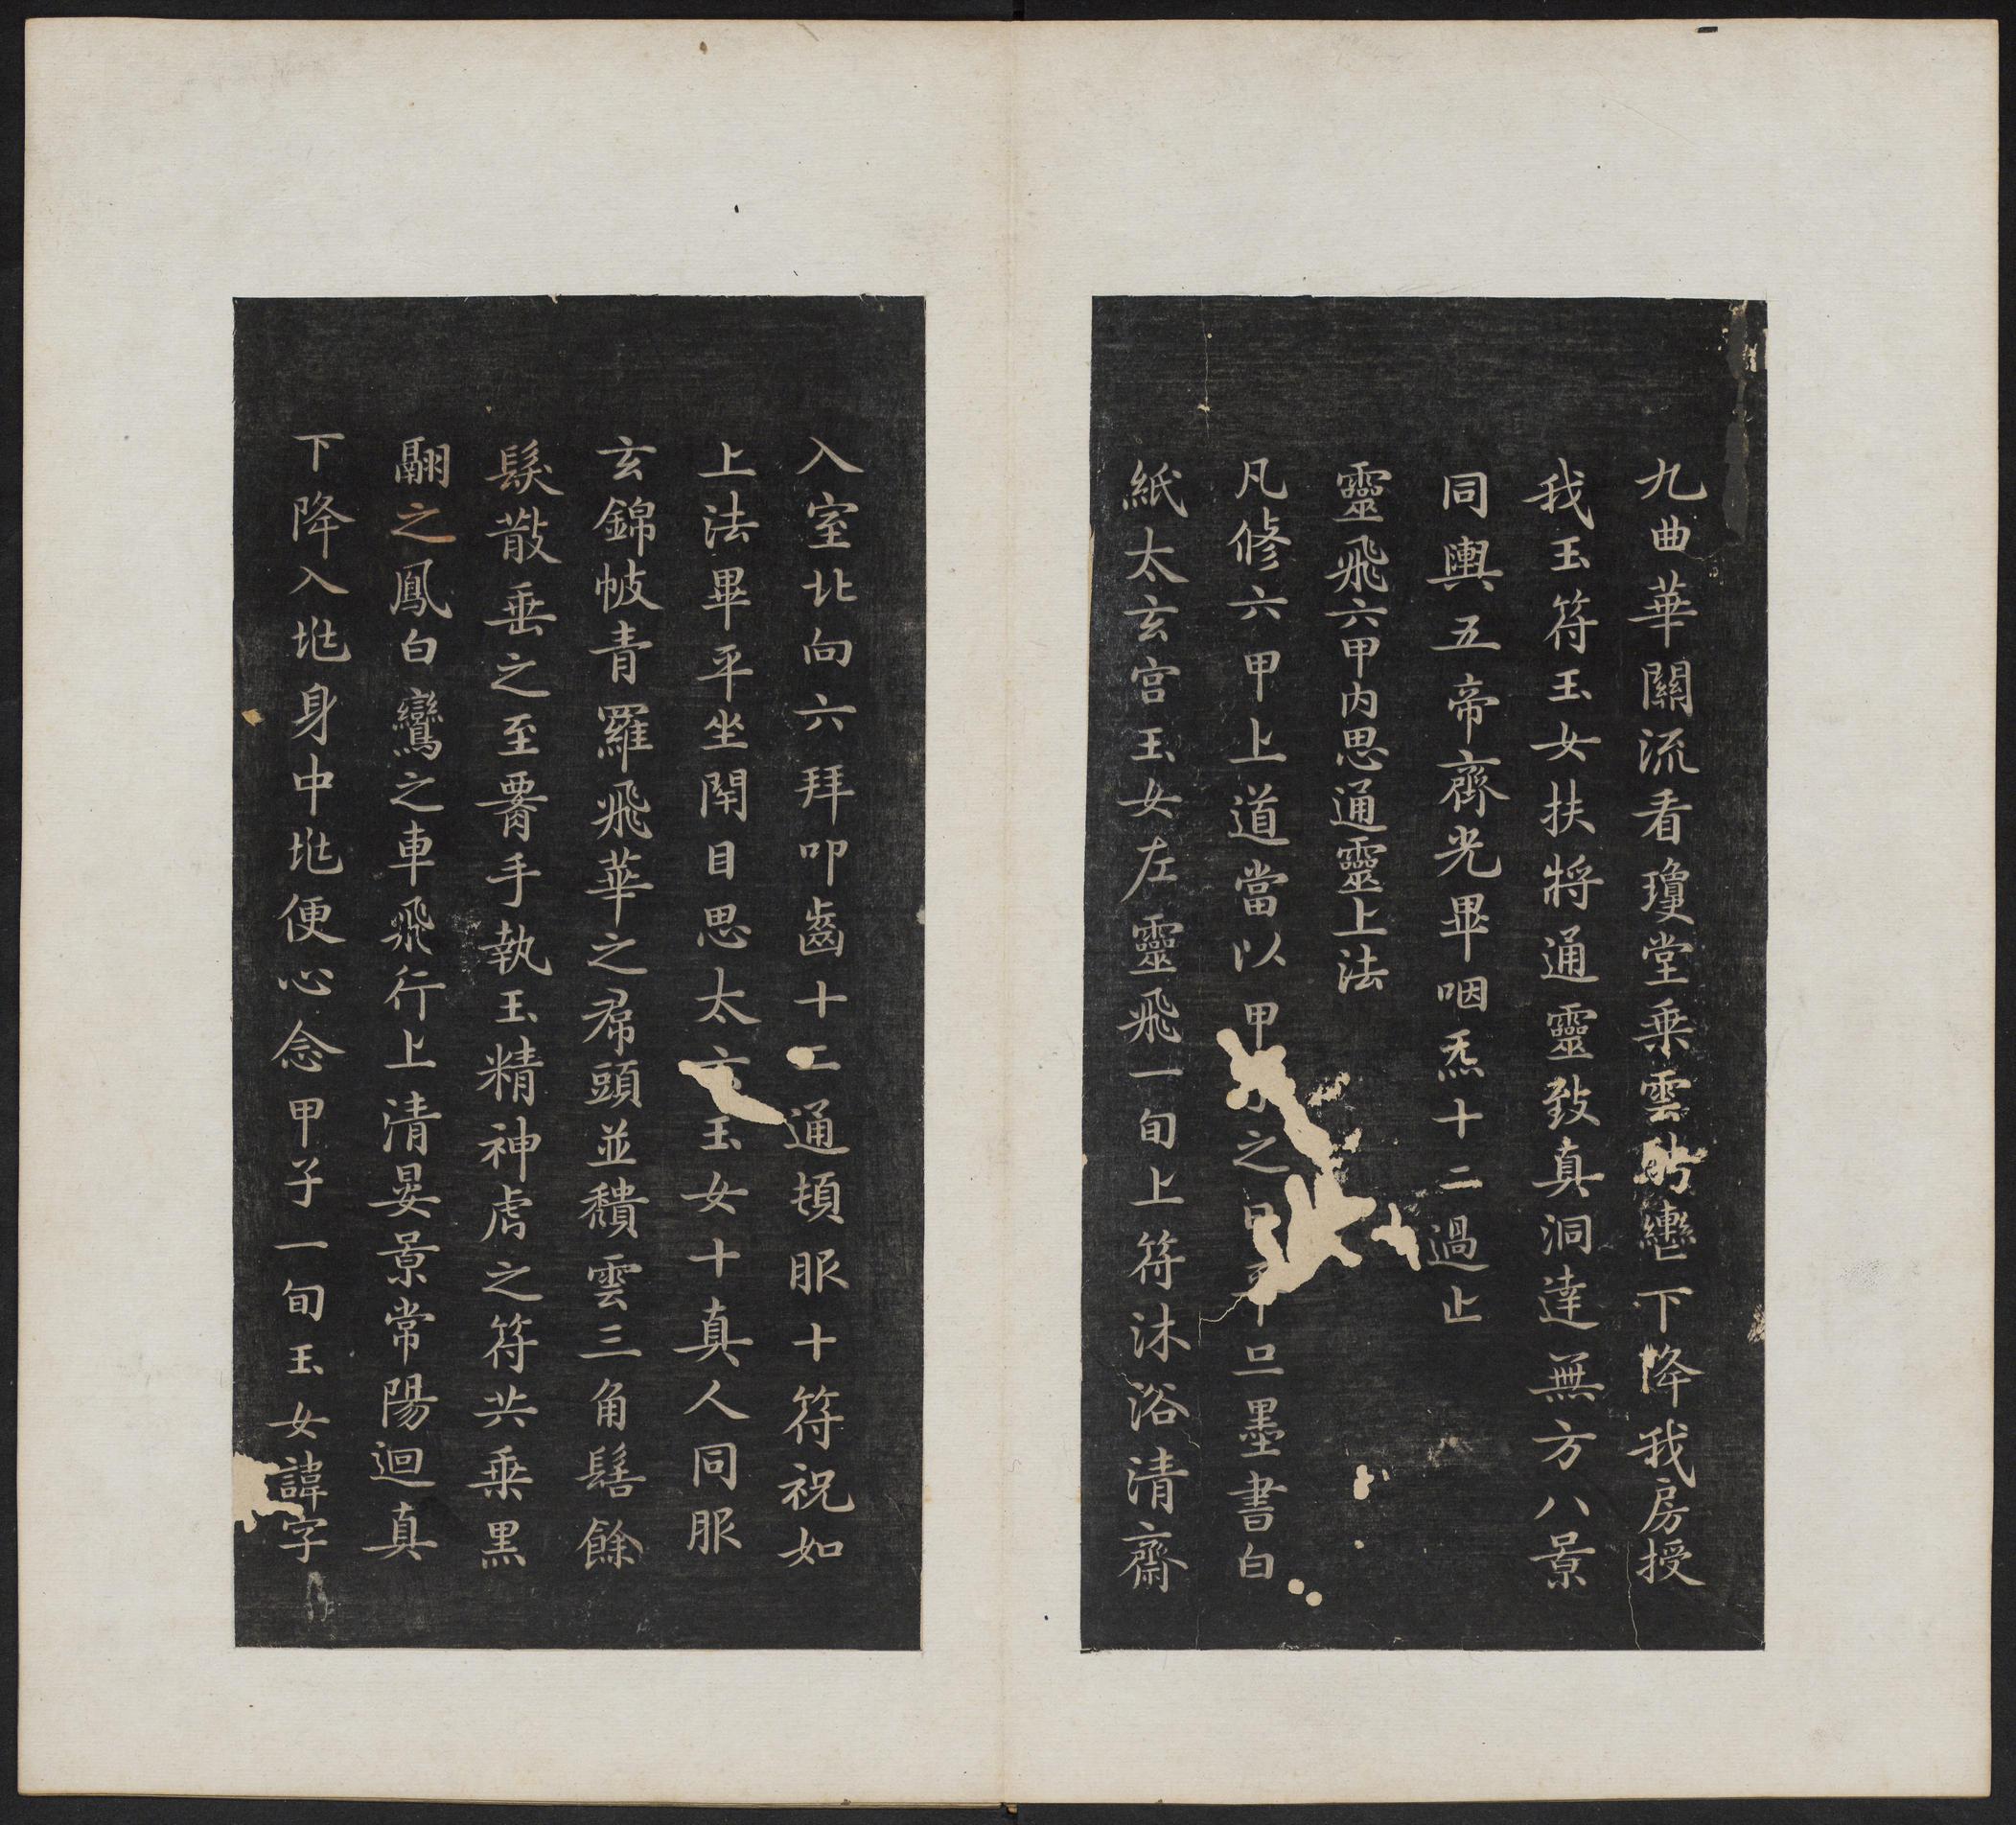 九曲華關流看瓊堂乗雲軿轡下降我房授
我玉符玉女扶將通靈致真洞達無方八景
同輿五帝齊光畢咽炁十二過止
靈飛六甲内思通靈上法
凡脩六甲上道當以甲子之日平旦墨書白
紙太玄宮玉女左靈飛一旬上符沐浴清齋
入室北向六拜叩齒十二通頓服十符祝如
上法畢平坐閇目思太玄玉女十真人同服
玄錦帔青羅飛華之帬頭並穨雲三角髻餘
髮散垂之至㬰手執玉精神虎之符共乗黒
翮之鳳白鸞之車飛行上清晏景常陽迴真
下降入㘴身中㘴便心念甲子一旬玉女諱字